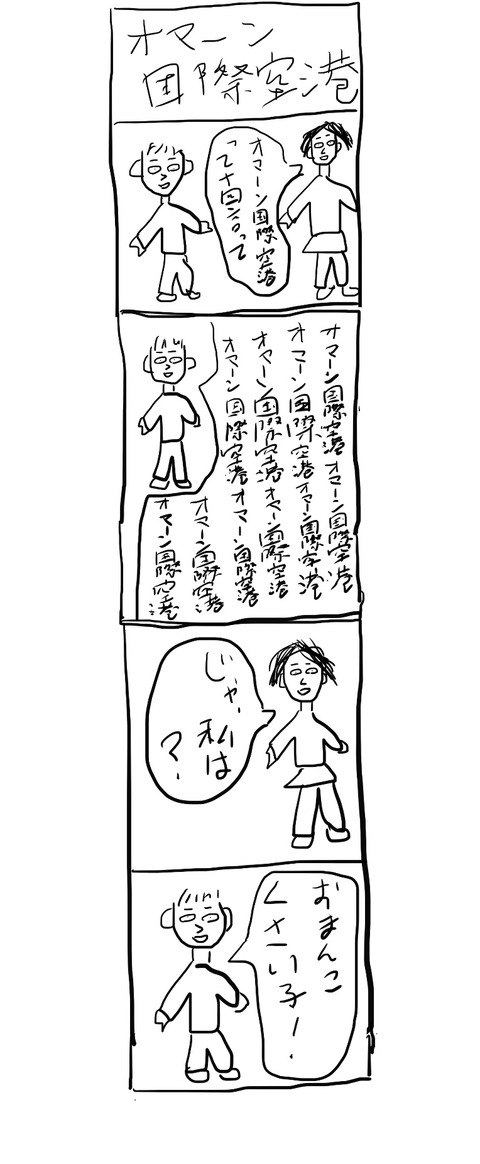 オマーン
国際空港
オマーン国際空港
って十回言って
オマーン国際空港オマーン国際空港
オマーン国際空港オマーン国際空港
オマーン国際空港オマーン国際空港
オマーン国際空港オマーン国際空港
オマーン国際空港
オマーン国際空港
じゃ、
私は
?
おまんこ
くさい子!